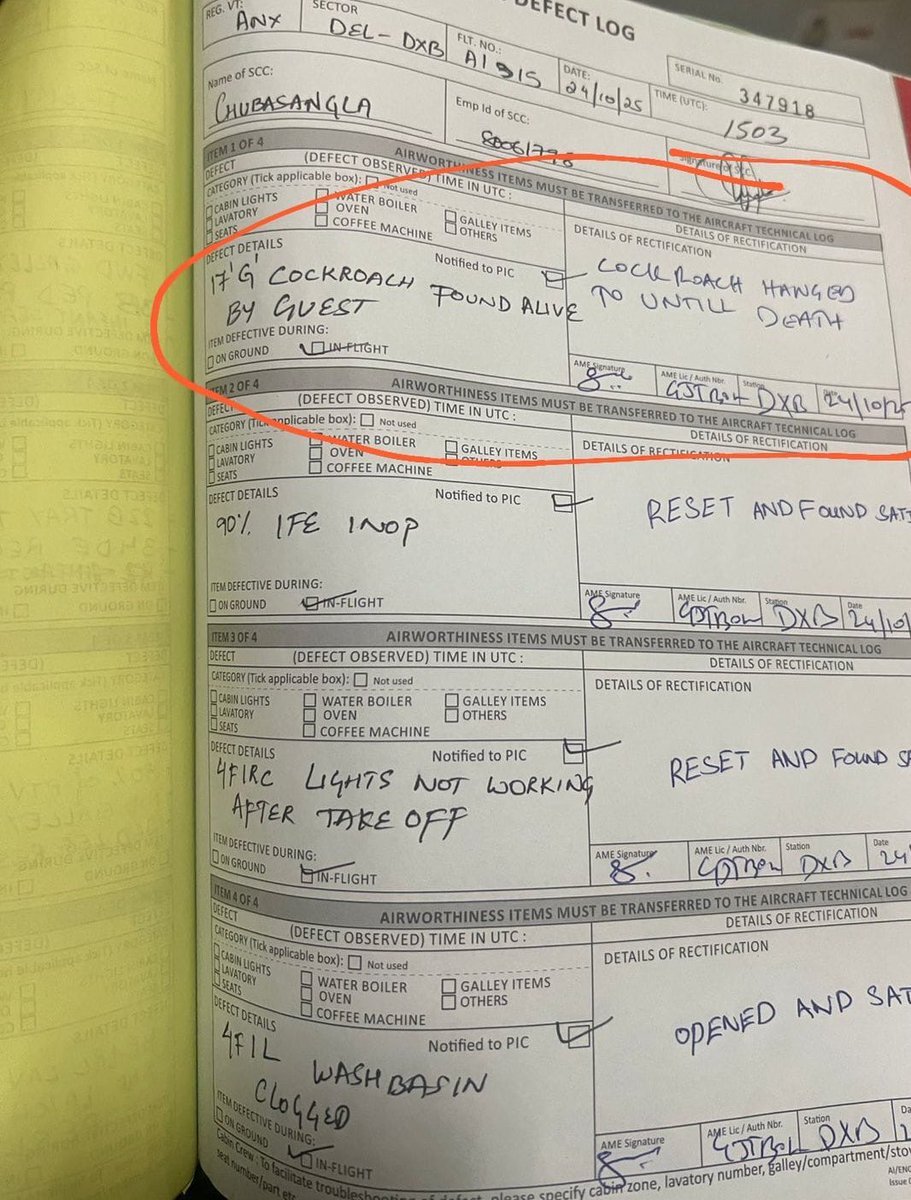 DEFECT LOG
REG. VT:
ANX
SECTOR
DEL-DXB
FLT. NO.:
AI 915
DATE:
24/10/25
SERIAL No.
347918
TIME (UTC):
1503
Name of SCC:
CHUBASANGLA
Emp Id of SCC:
Signature of SCC
ITEM 1 OF 4 AIRWORTHINESS ITEMS MUST BE TRANSFERRED TO THE AIRCRAFT TECHNICAL LOG
DEFECT (DEFECT OBSERVED) TIME IN UTC :
DETAILS OF RECTIFICATION
CATEGORY (Tick applicable box): Not used
CABIN LIGHTS WATER BOILER GALLEY ITEMS
LAVATORY OVEN OTHERS
SEATS COFFEE MACHINE
DETAILS OF RECTIFICATION
DEFECT DETAILS Notified to PIC
17'G' COCKROACH FOUND ALIVE
BY GUEST
COCKROACH HANGED
TO UNTILL DEATH
ITEM DEFECTIVE DURING:
ON GROUND IN-FLIGHT
AME Signature AME Lic / Auth Nbr. Station
DXB 24/10/25
ITEM 2 OF 4 AIRWORTHINESS ITEMS MUST BE TRANSFERRED TO THE AIRCRAFT TECHNICAL LOG
DEFECT (DEFECT OBSERVED) TIME IN UTC :
DETAILS OF RECTIFICATION
CATEGORY (Tick applicable box): Not used
CABIN LIGHTS WATER BOILER GALLEY ITEMS
LAVATORY OVEN OTHERS
SEATS COFFEE MACHINE
DETAILS OF RECTIFICATION
DEFECT DETAILS Notified to PIC
90% IFE INOP
RESET AND FOUND SATI
ITEM DEFECTIVE DURING:
ON GROUND IN-FLIGHT
AME Signature AME Lic / Auth Nbr. Station Date
DXB 24/10/
ITEM 3 OF 4 AIRWORTHINESS ITEMS MUST BE TRANSFERRED TO THE AIRCRAFT TECHNICAL LOG
DEFECT (DEFECT OBSERVED) TIME IN UTC :
DETAILS OF RECTIFICATION
CATEGORY (Tick applicable box): Not used
CABIN LIGHTS WATER BOILER GALLEY ITEMS
LAVATORY OVEN OTHERS
SEATS COFFEE MACHINE
DETAILS OF RECTIFICATION
DEFECT DETAILS Notified to PIC
4FIRC LIGHTS NOT WORKING
AFTER TAKE OFF
RESET AND FOUND SA
ITEM DEFECTIVE DURING:
ON GROUND IN-FLIGHT
AME Signature AME Lic / Auth Nbr. Station Date
DXB 24/
ITEM 4 OF 4 AIRWORTHINESS ITEMS MUST BE TRANSFERRED TO THE AIRCRAFT TECHNICAL LOG
DEFECT (DEFECT OBSERVED) TIME IN UTC :
DETAILS OF RECTIFICATION
CATEGORY (Tick applicable box): Not used
CABIN LIGHTS WATER BOILER GALLEY ITEMS
LAVATORY OVEN OTHERS
SEATS COFFEE MACHINE
DETAILS OF RECTIFICATION
DEFECT DETAILS Notified to PIC
4FIL WASHBASIN
CLOGGED
OPENED AND SAT
ITEM DEFECTIVE DURING:
ON GROUND IN-FLIGHT
AME Signature AME Lic / Auth Nbr. Station
DXB
Cabin Crew : To facilitate troubleshooting of defect, please specify cabin zone, lavatory number, galley/compartment/stow
seat number/part etc.
AI/ENG
Issue